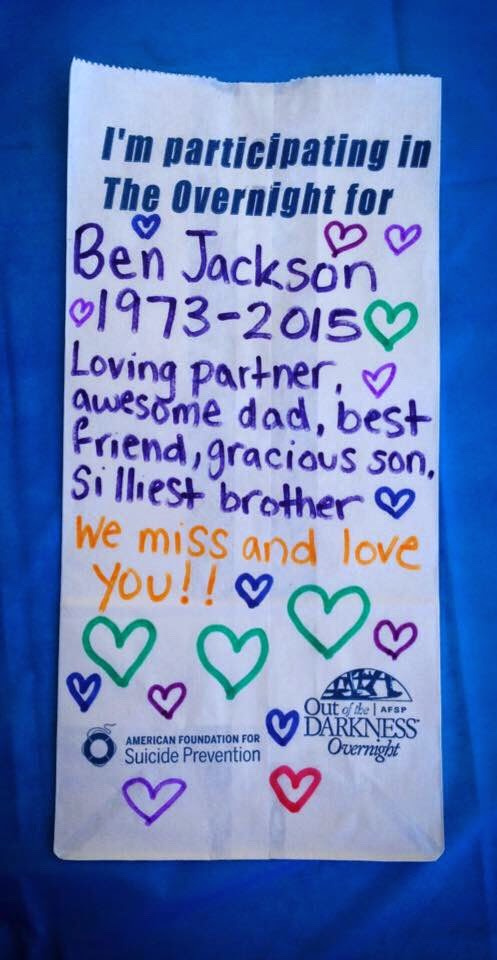 I'm participating in
The Overnight for
Ben Jackson
1973-2015
Loving partner,
awesome dad, best
friend, gracious son,
Silliest brother
We miss and love
You!!
Out of the | AFSP
DARKNESS
Overnight
AMERICAN FOUNDATION FOR
Suicide Prevention